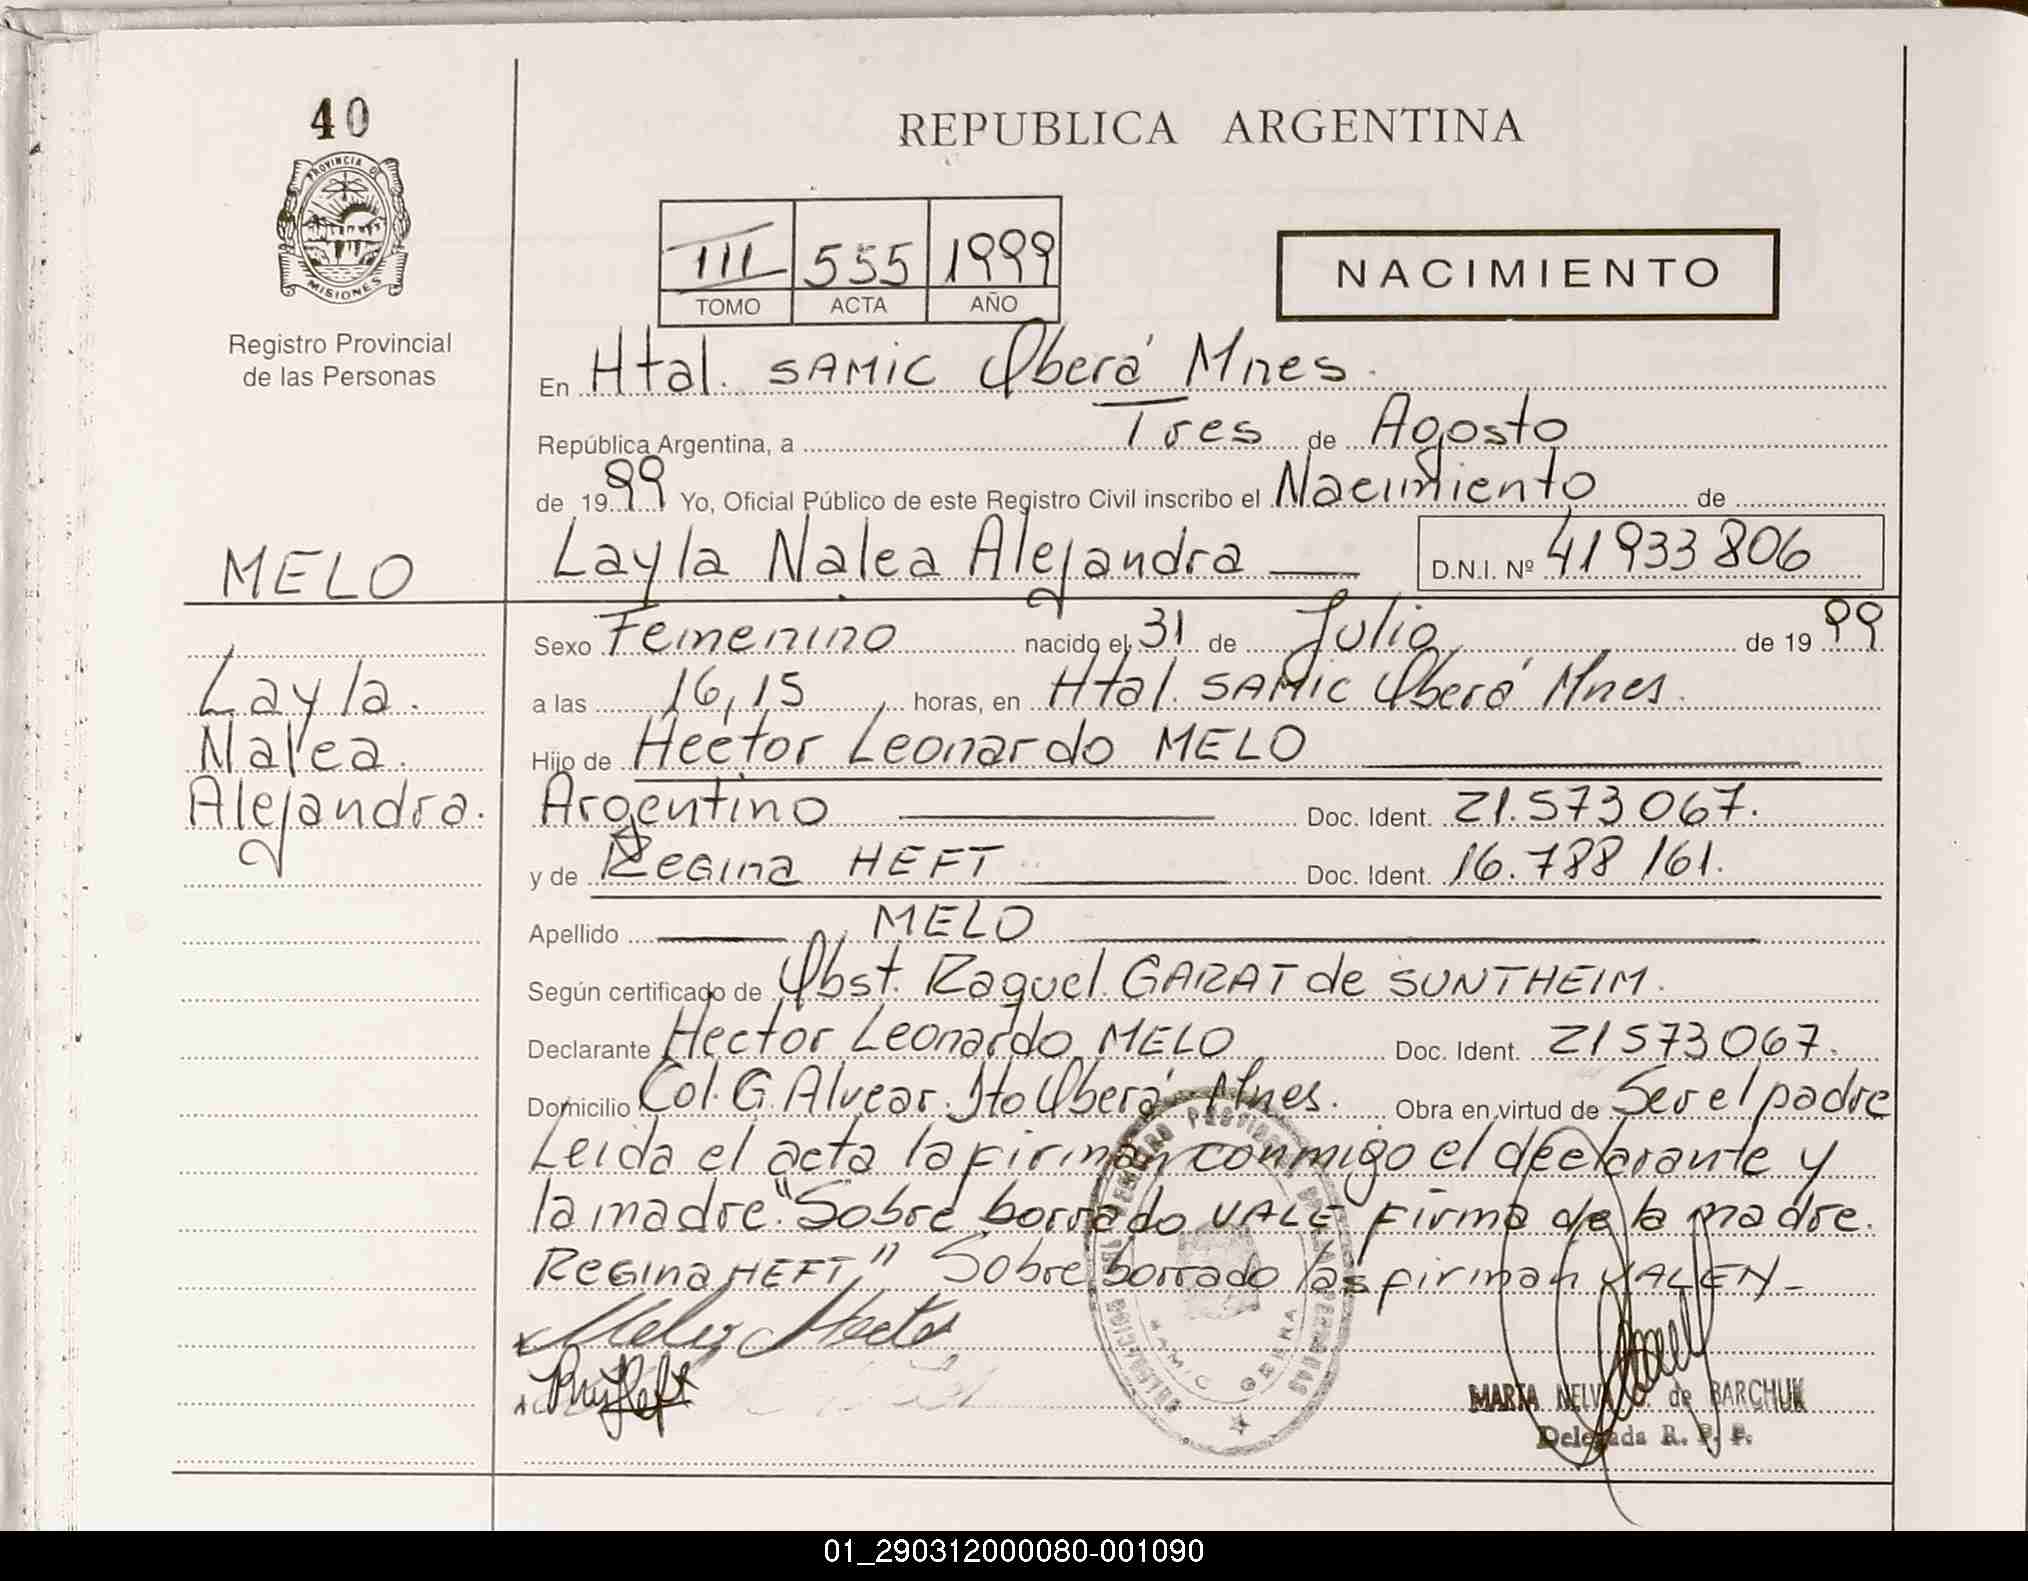 40
PROVINCIA DE
MISIONES
Registro Provincial
de las Personas
MELO
Layla
Nalea
Alejandra.
REPUBLICA ARGENTINA
III 555 1999
TOMO ACTA AÑO
NACIMIENTO
En Htal. SAMIC Oberá Mnes.
República Argentina, a Tres de Agosto
de 1999 Yo, Oficial Público de este Registro Civil inscribo el Nacimiento de
Layla Nalea Alejandra D.N.I. Nº 41933806
Sexo Femenino nacido el 31 de Julio de 1999
a las 16,15 horas, en Htal. SAMIC Oberá Mnes.
Hijo de Hector Leonardo MELO
Argentino Doc. Ident. 21.573067.
y de Regina HEFT Doc. Ident. 16.788161.
Apellido MELO
Según certificado de Obst. Raquel GARAT de SUNTHEIM.
Declarante Hector Leonardo MELO Doc. Ident. 21573067.
Domicilio Col. G. Alvear. Dto Oberá Mnes. Obra en virtud de Ser el padre
Leida el acta la firman conmigo el declarante y
la madre. "Sobre borrado VALE firma de la madre.
Regina HEFT" Sobre borrado las firman VALEN_
Melo Hector
SAMIC OBERA
MARTA NELV de BARCHUK
Delegada R. P. P.
01_290312000080-001090